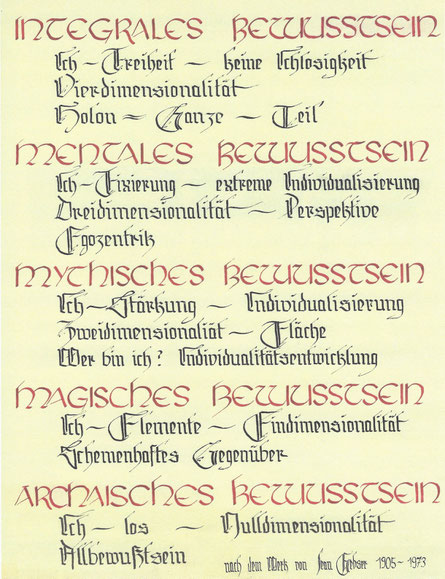 INTEGRALES BEWUSSTSEIN
Ich – Freiheit – keine Ichlosigkeit
Vierdimensionalität
Holon – Ganze – Teil
MENTALES BEWUSSTSEIN
Ich – Fixierung – extreme Individualisierung
Dreidimensionalität – Perspektive
Egozentrik
MYTHISCHES BEWUSSTSEIN
Ich – Stärkung – Individualisierung
Zweidimensionaliät – Fläche
Wer bin ich? Individualitätsentwicklung
MAGISCHES BEWUSSTSEIN
Ich – Elemente – Eindimensionalität
Schemenhaftes Gegenüber
ARCHAISCHES BEWUSSTSEIN
Ich – los – Nulldimensionalität
Allbewußtsein
nach dem Werk von Jean Gebser 1905 – 1973